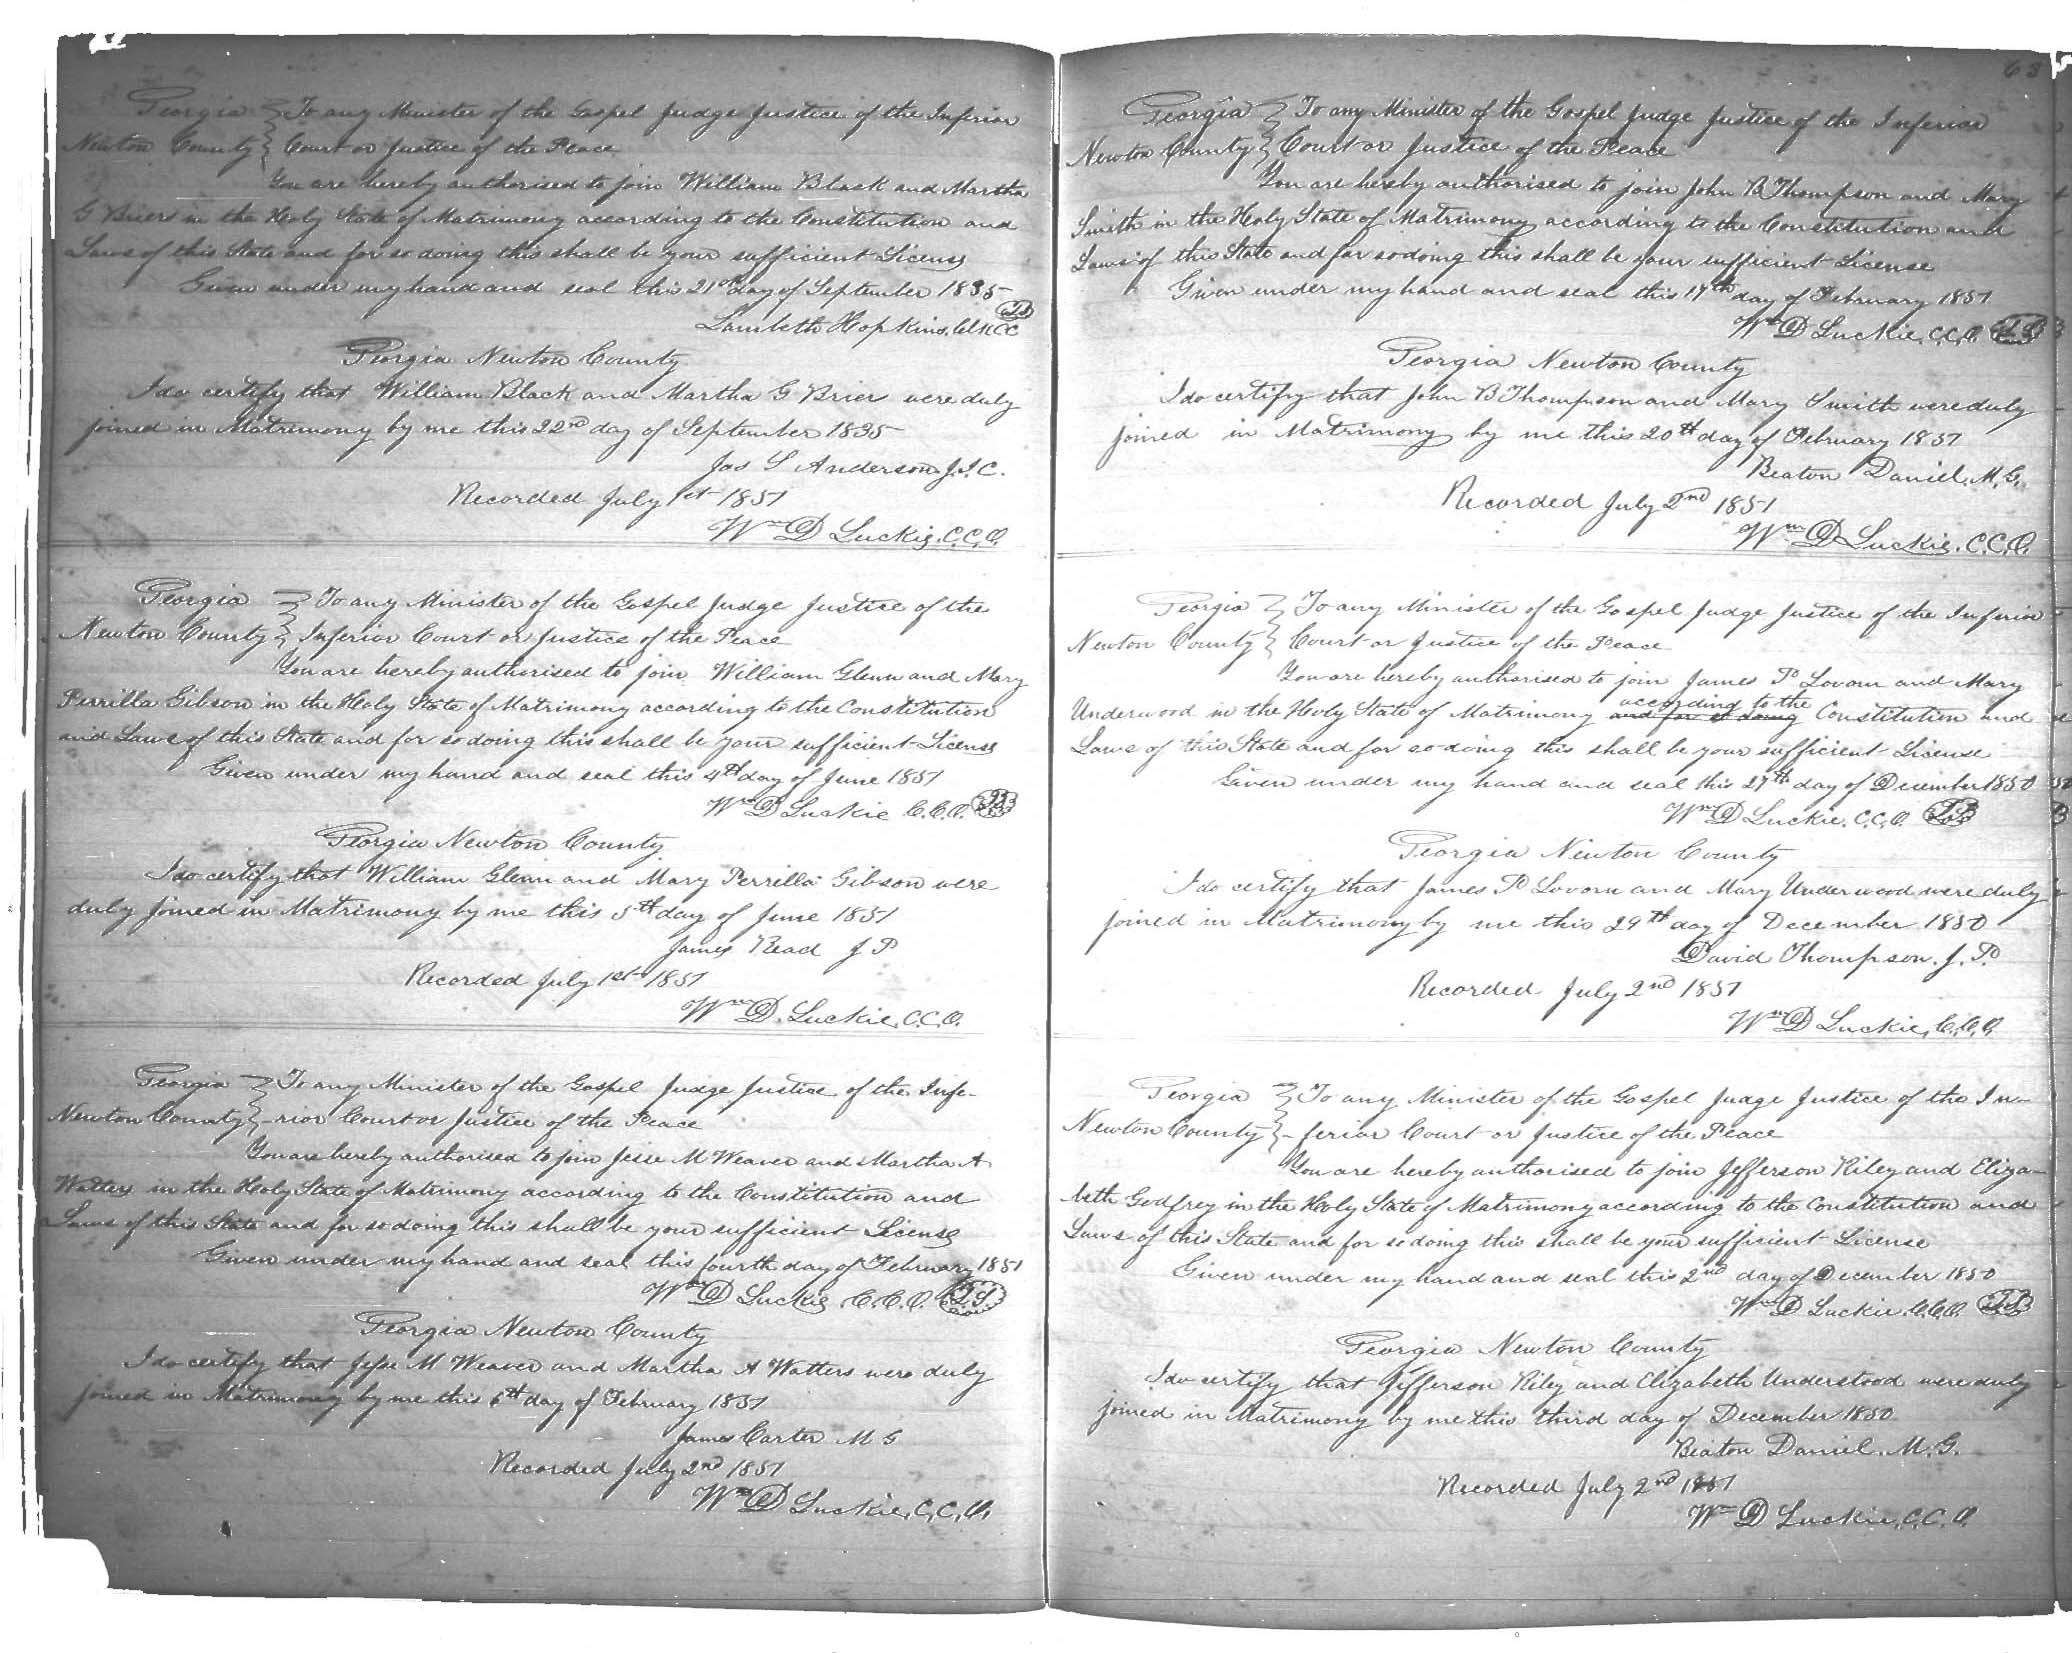 Georgia } To any Minister of the Gospel Judge Justice of the Inferior
Newton County } Court or Justice of the Peace
You are hereby authorised to join William Black and Martha
G Briers in the Holy State of Matrimony according to the Constitution and
Laws of this State and for so doing this shall be your sufficient License
Given under my hand and seal this 21st day of September 1835
Lambeth Hopkins, Clk CC
Georgia Newton County
I do certify that William Black and Martha G Brier were duly
joined in Matrimony by me this 22nd day of September 1835
Jas S Anderson J.I.C.
Recorded July 1st 1851
Wm D Luckie, C.C.O.
Georgia } To any Minister of the Gospel Judge Justice of the
Newton County } Inferior Court or Justice of the Peace
You are hereby authorised to join William Glenn and Mary
Perrilla Gibson in the Holy State of Matrimony according to the Constitution
and Laws of this State and for so doing this shall be your sufficient License
Given under my hand and seal this 4th day of June 1851
Wm D Luckie C.C.O. LS
Georgia Newton County
I do certify that William Glenn and Mary Perrilla Gibson were
duly joined in Matrimony by me this 5th day of June 1851
James Read J P
Recorded July 1st 1851
Wm D. Luckie, C.C.O.
Georgia } To any Minister of the Gospel Judge Justice of the Infe-
Newton County } -rior Court or Justice of the Peace
You are hereby authorised to join Jesse M Weaver and Martha A
Watters in the Holy State of Matrimony according to the Constitution and
Laws of this State and for so doing this shall be your sufficient License
Given under my hand and seal this fourth day of February 1851
Wm D Luckie C.C.O. L.S.
Georgia Newton County
I do certify that Jesse M Weaver and Martha A Watters were duly
joined in Matrimony by me this 6th day of February 1851
James Carter M G
Recorded July 2nd 1851
Wm D Luckie, C,C,O,
63
Georgia } To any Minister of the Gospel Judge Justice of the Inferior
Newton County } Court or Justice of the Peace
You are hereby authorised to join John B Thompson and Mary
Smith in the Holy State of Matrimony according to the Constitution and
Laws of this State and for so doing this shall be your sufficient License
Given under my hand and seal this 17th day of February 1851
Wm D Luckie, C.C.O. L.S.
Georgia Newton County
I do certify that John B Thompson and Mary Smith were duly
joined in Matrimony by me this 20th day of February 1851
Beaton Daniel. M. G.
Recorded July 2nd 1851
Wm D Luckie. C.C.O.
Georgia } To any Minister of the Gospel Judge Justice of the Inferior
Newton County } Court or Justice of the Peace
You are hereby authorised to join James P Lovorn and Mary
according to the
Underwood in the Holy State of Matrimony and for so doing Constitution and
Laws of this State and for so doing this shall be your sufficient License
Given under my hand and seal this 27th day of December 1850
Wm D Luckie. C.C.O. L.S.
Georgia Newton County
I do certify that James P Lovorn and Mary Underwood were duly
joined in Matrimony by me this 29th day of December 1850
David Thompson. J. P.
Recorded July 2nd 1851
Wm D Luckie, C.C.O.
Georgia } To any Minister of the Gospel Judge Justice of the In-
Newton County } -ferior Court or Justice of the Peace
You are hereby authorised to join Jefferson Riley and Eliza-
beth Godfrey in the Holy State of Matrimony according to the Constitution and
Laws of this State and for so doing this shall be your sufficient License
Given under my hand and seal this 2nd day of December 1850
Wm D Luckie. C.C.O. L.S.
Georgia Newton County
I do certify that Jefferson Riley and Elizabeth Understood were duly
joined in Matrimony by me this third day of December 1850
Beaton Daniel. M. G.
Recorded July 2nd 1851
Wm D Luckie, C.C.O.